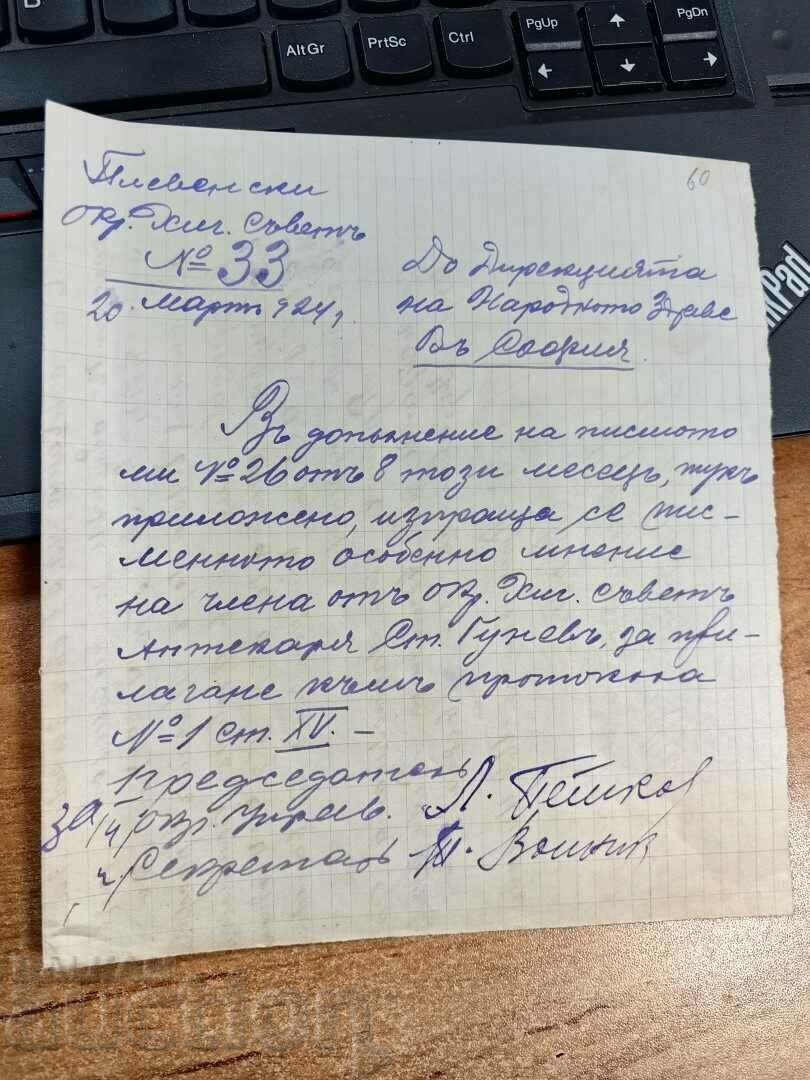 AltGr
PrtSc
Ctrl
PgUp
PgDn
Pad
60
Плевенски
окр. Хиг. Съветъ
№ 33
20 Мартъ 924,
До Дирекцията
на Народното Здраве
Въ София.
Въ допълнение на писмото
ми № 26 отъ 8 този месецъ, тукъ
приложено, изпраща се пис-
менното особенно мнение
на члена отъ окр. Хиг. съветъ
Аптекаря Ст. Гуневъ, за при-
лагане към протокола
№ 1 ст. XV. –
Председатель
за окр. Управ. Л. Пешков
Секретарь
auction